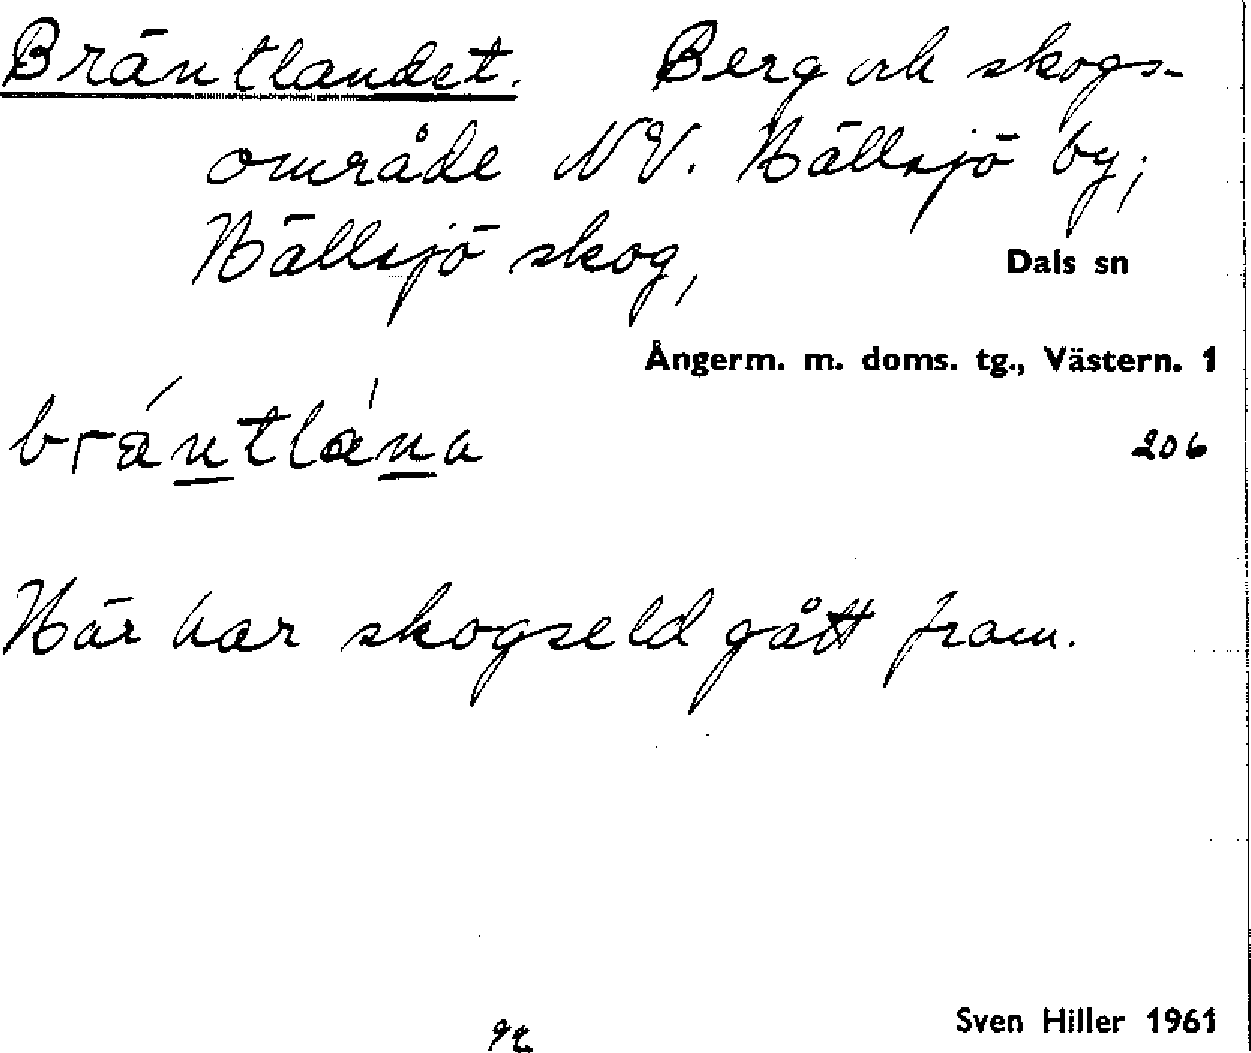 Bräntlandet. Berg och skogs-
område NV. Hällsjö by,
Hällsjö skog, Dals sn
Ångerm. m. doms. tg., Västern. 1
206
Här har skogseld gått fram.
Sven Hiller 1961